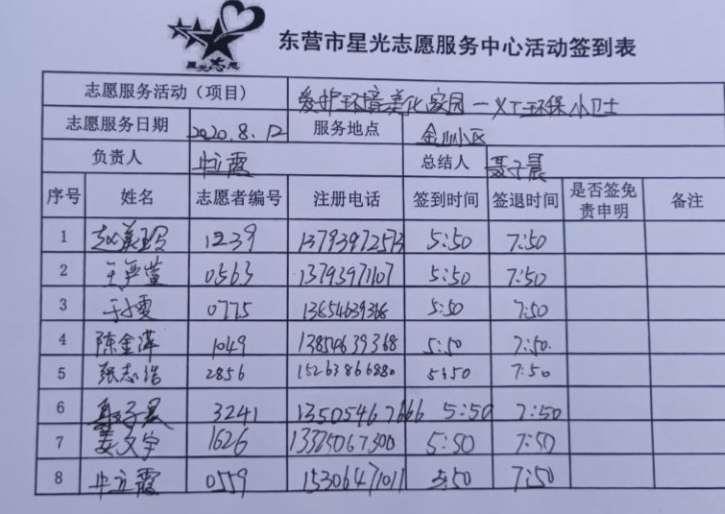 星光志愿
东营市星光志愿服务中心活动签到表
志愿服务活动（项目） 爱护环境美化家园一义工环保小卫士
志愿服务日期 2020.8.12 服务地点 金山小区
负责人 牛立霞 总结人 聂子晨
序号 姓名 志愿者编号 注册电话 签到时间 签退时间 是否签免责申明 备注
1 赵美玲 1239 13793972573 5:50 7:50
2 王严萱 0563 13793971107 5:50 7:50
3 于小雯 0775 13654639368 5:50 7:50
4 陈金萍 1049 13854639368 5:50 7:50.
5 张志浩 2856 15263866880 5:50 7:50
6 聂子晨 3241 13505467666 5:50 7:50
7 姜文宇 1626 13325067300 5:50 7:50
8 牛立霞 0559 15306471011 5:50 7:50